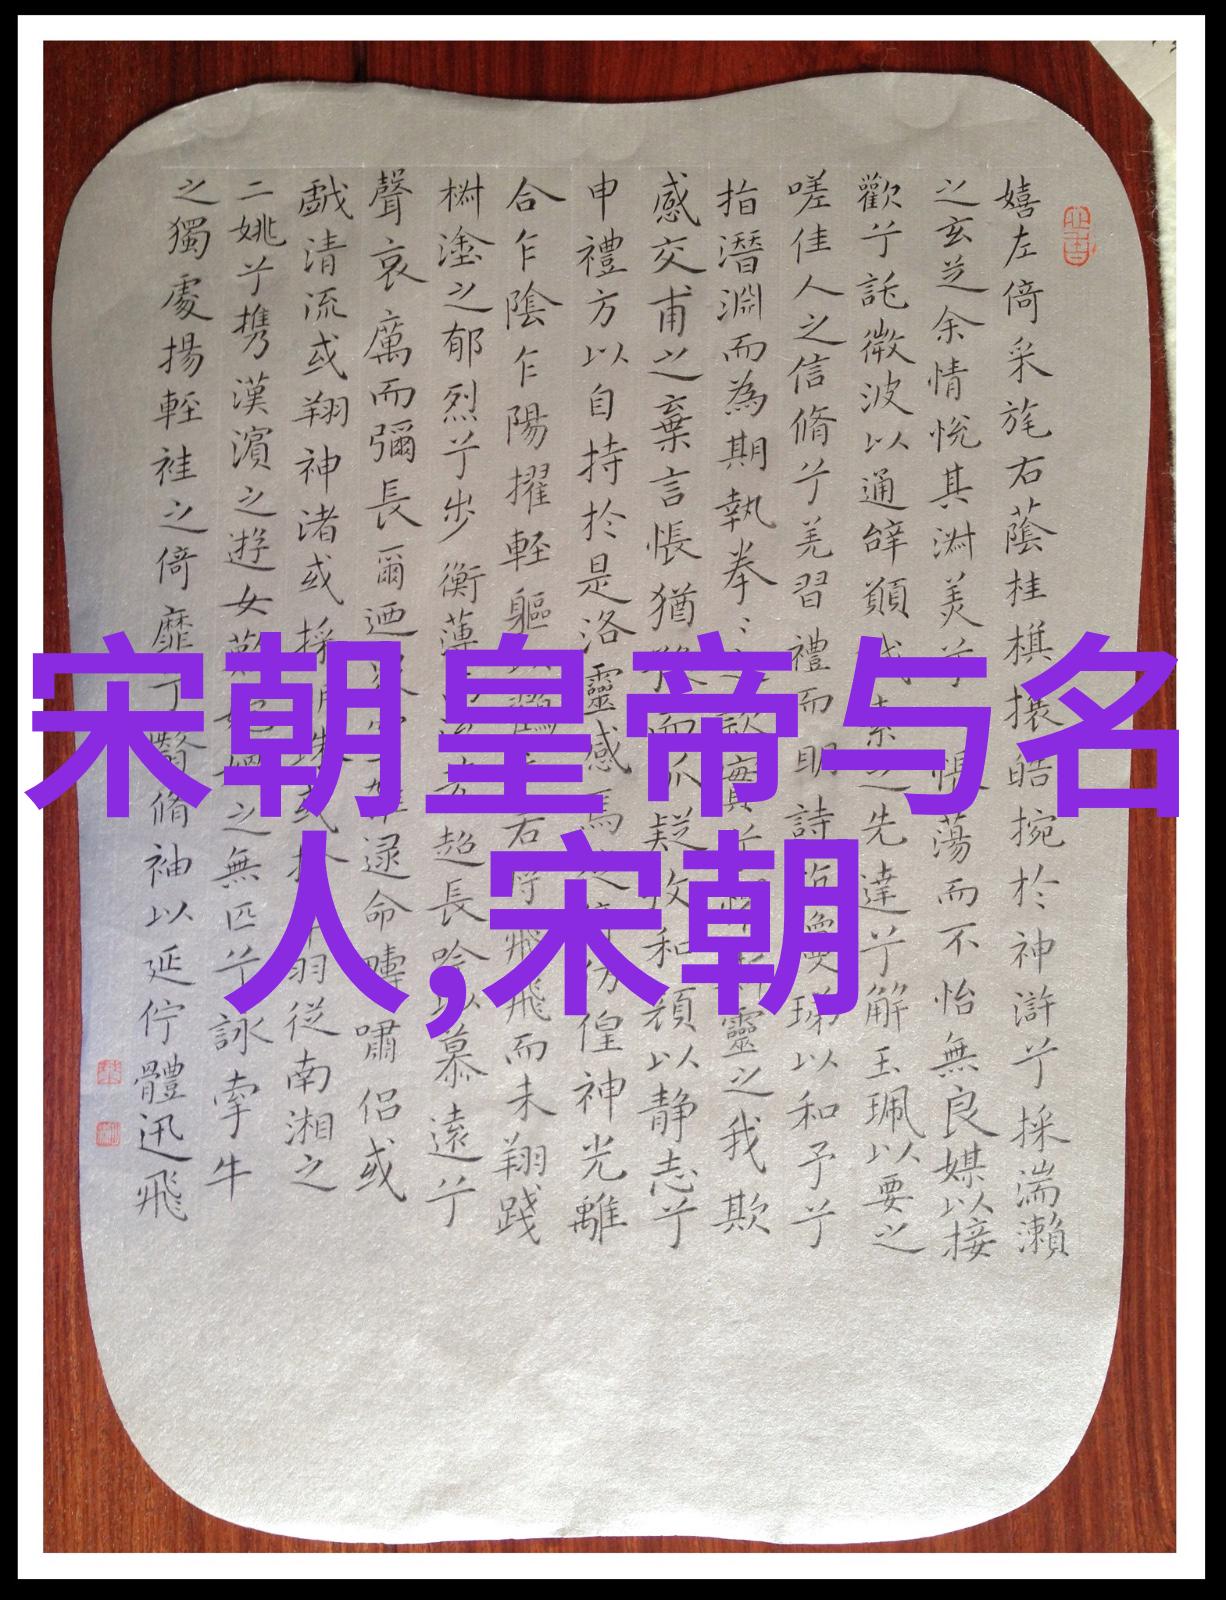 嬉左倚采旄右蔭桂棋攘皓捥於神滸兮採湍瀨
之玄芝余情悅其淑美兮 蕩而不怡無良媒以接
歡兮託微波以通辭願 先達兮解玉珮以要之
嗟佳人之信脩兮羌習禮而明詩 以和予兮
指潛淵而為期執拳 靈之我欺
感交甫之棄言悵猶 而 疑收和顏以静志兮
申禮方以自持於是洛靈感焉 偟神光離
合乍陰乍陽擢輕軀 飛而未翔踐
樹塗之郁烈兮步衡薄 超長吟以慕遠兮
聲哀厲而彌長爾迺 逯命疇嘯侶或
戲清流或翔神渚或採 羽從南湘之
二姚兮携漢濱之遊女歎 之無匹兮詠牽牛
之獨處揚輕袿之倚靡 脩袖以延佇體迅飛
宋朝皇帝与名
人,宋朝